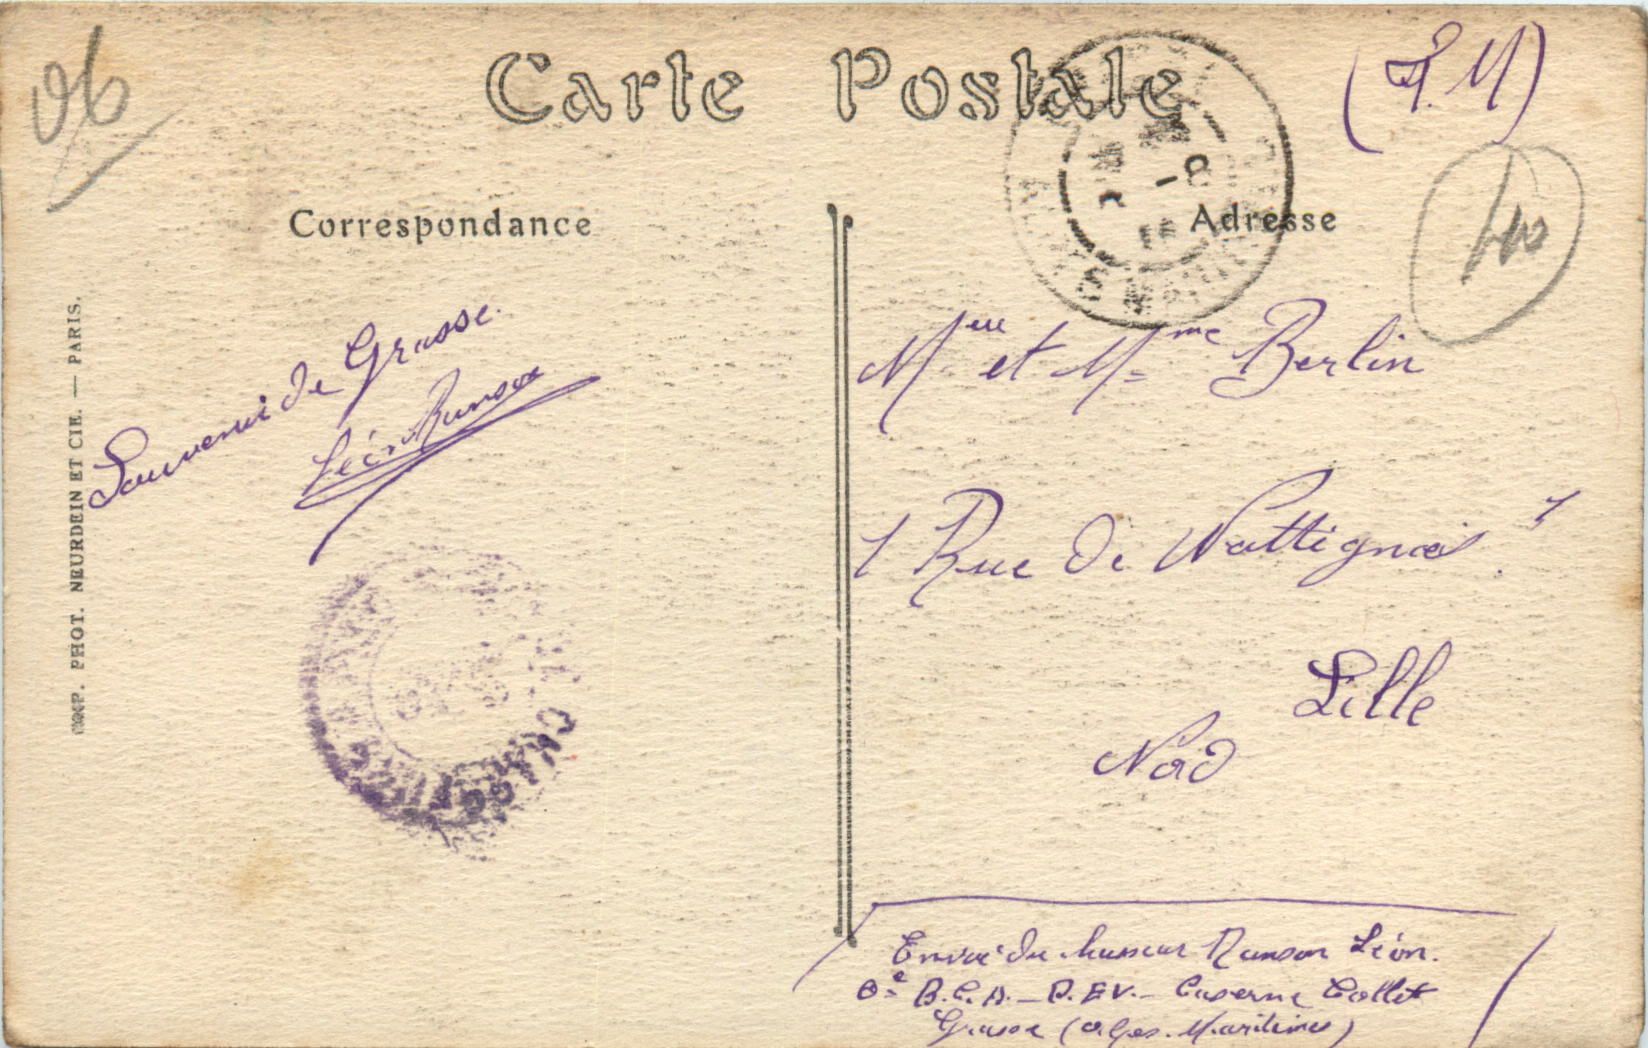 06
Carte Postale
(F.M)
Correspondance
Adresse
40
COMP. PHOT. NEURDEIN ET CIE. — PARIS.
Souvenir de Grasse.
Léon Ranson
Mr et Mme Berlin
1 Rue de Wattignies 1
Lille
Nord
Envoi du chasseur Ranson Léon.
B.C.A. — Caserne Collet
Grasse (Alpes-Maritimes)